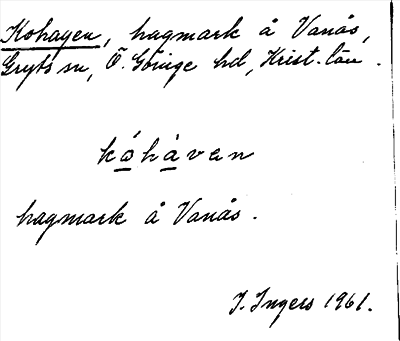 Kohagen, hagmark å Vanås,
Gryts sn, Ö. Göinge hd, Krist. län.
kóhàven
hagmark å Vanås.
I. Ingers 1961.